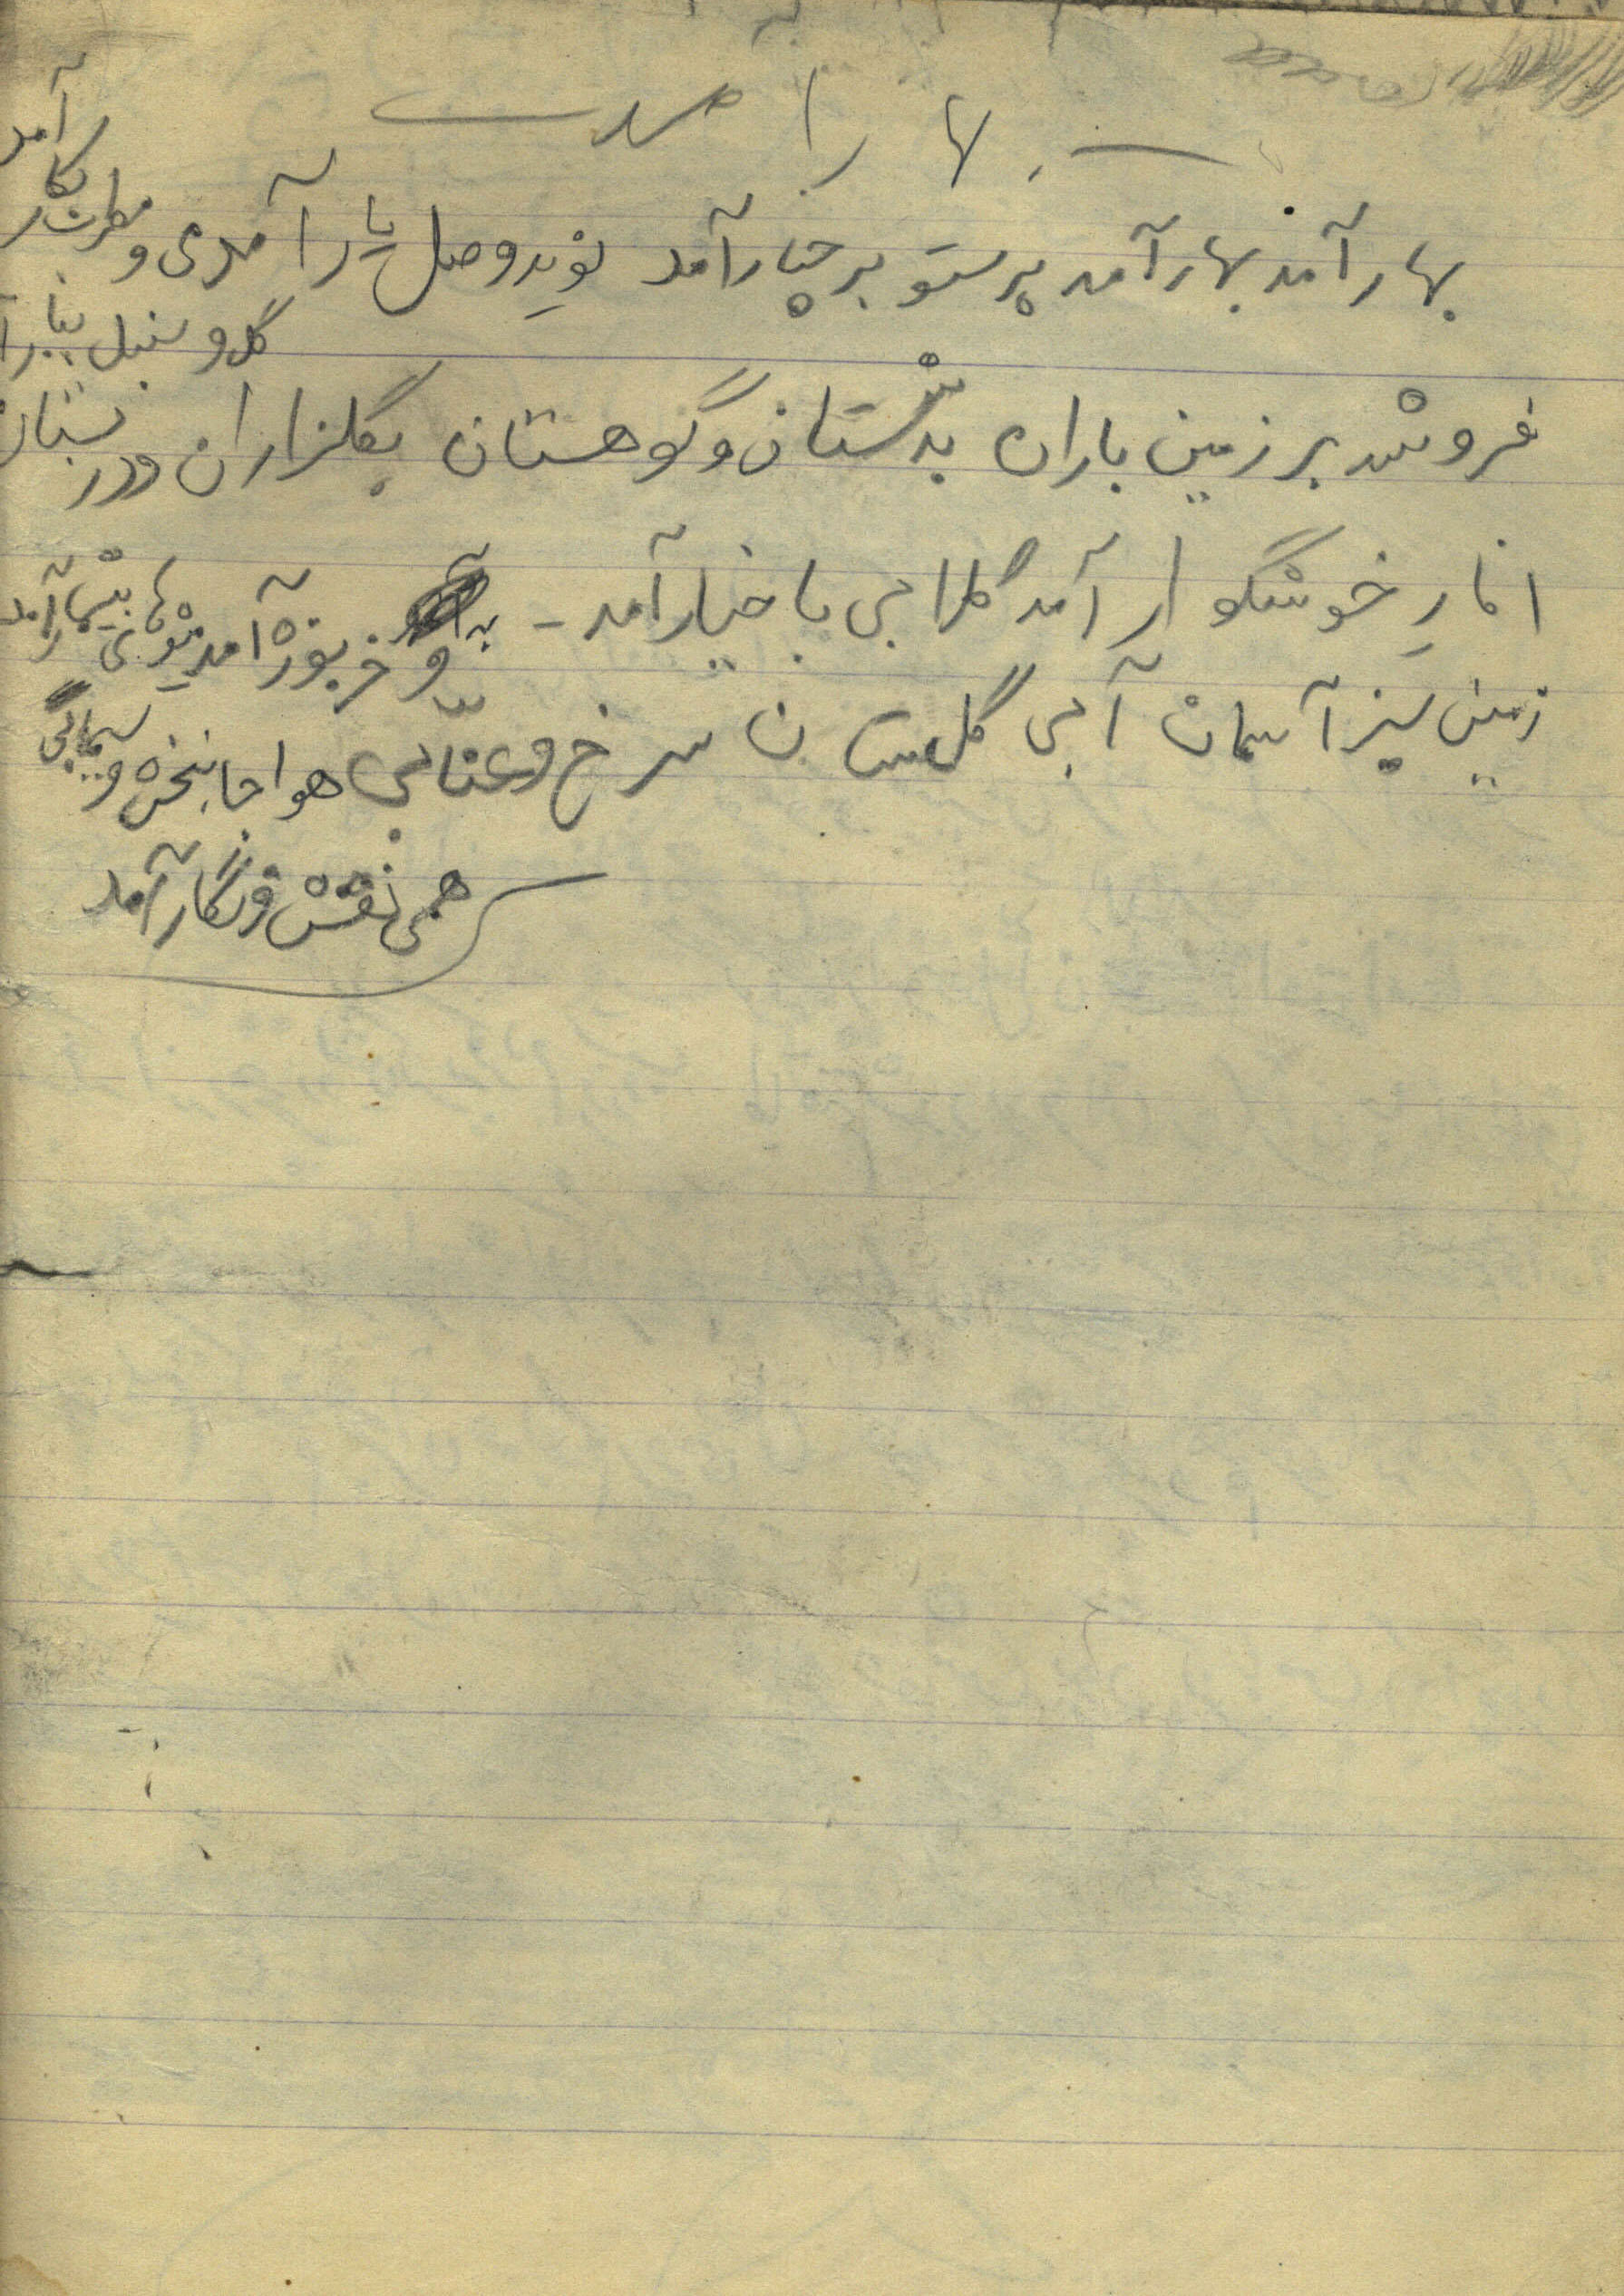 بهار آمدست
بهار آمد بهار آمد پرستو بر چنار آمد نوید وصل یار آمد می و مطرب بکار آمد
گل و سنبل ببار آ
فروشد بر زمین باران بدشتستان و کوهستان بگلزاران و در بستان
انارِ خوشگوار آمد گلابی با خیار آمد - به و خربوزه آمد توتهای بیشمار آمد
زمین سبز آسمان آبی گلستان سرخ و عنّابی هوا جانبخش و سیمابی
همی نقش و نگار آمد